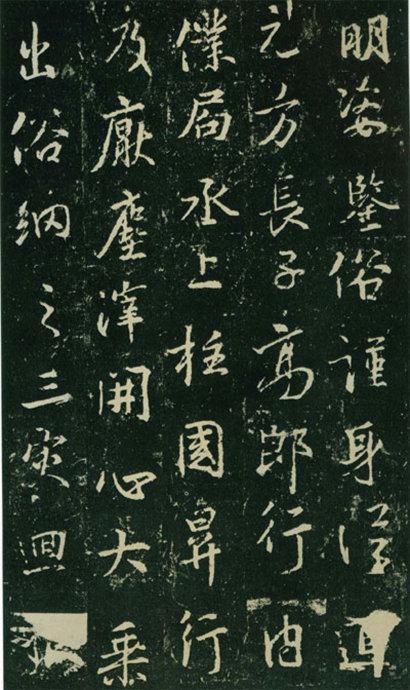 明姿鑒俗謹身
元方長子高郎行內
僕局丞上柱國昇行
及厭塵滓開心大乘
出俗納之三寶迴